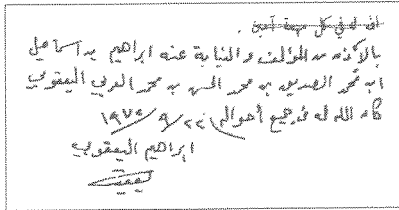 الله له في كل مهمة آمين .
بالأذن من المؤلف و النيابة عنه ابراهيم بن اسماعيل
ابن محمد الصديق بن محمد الحسن بن محمد العربي اليعقوبي
كان الله له في جميع أحواله ٢٢/٩/١٩٧٤
ابراهيم اليعقوبي